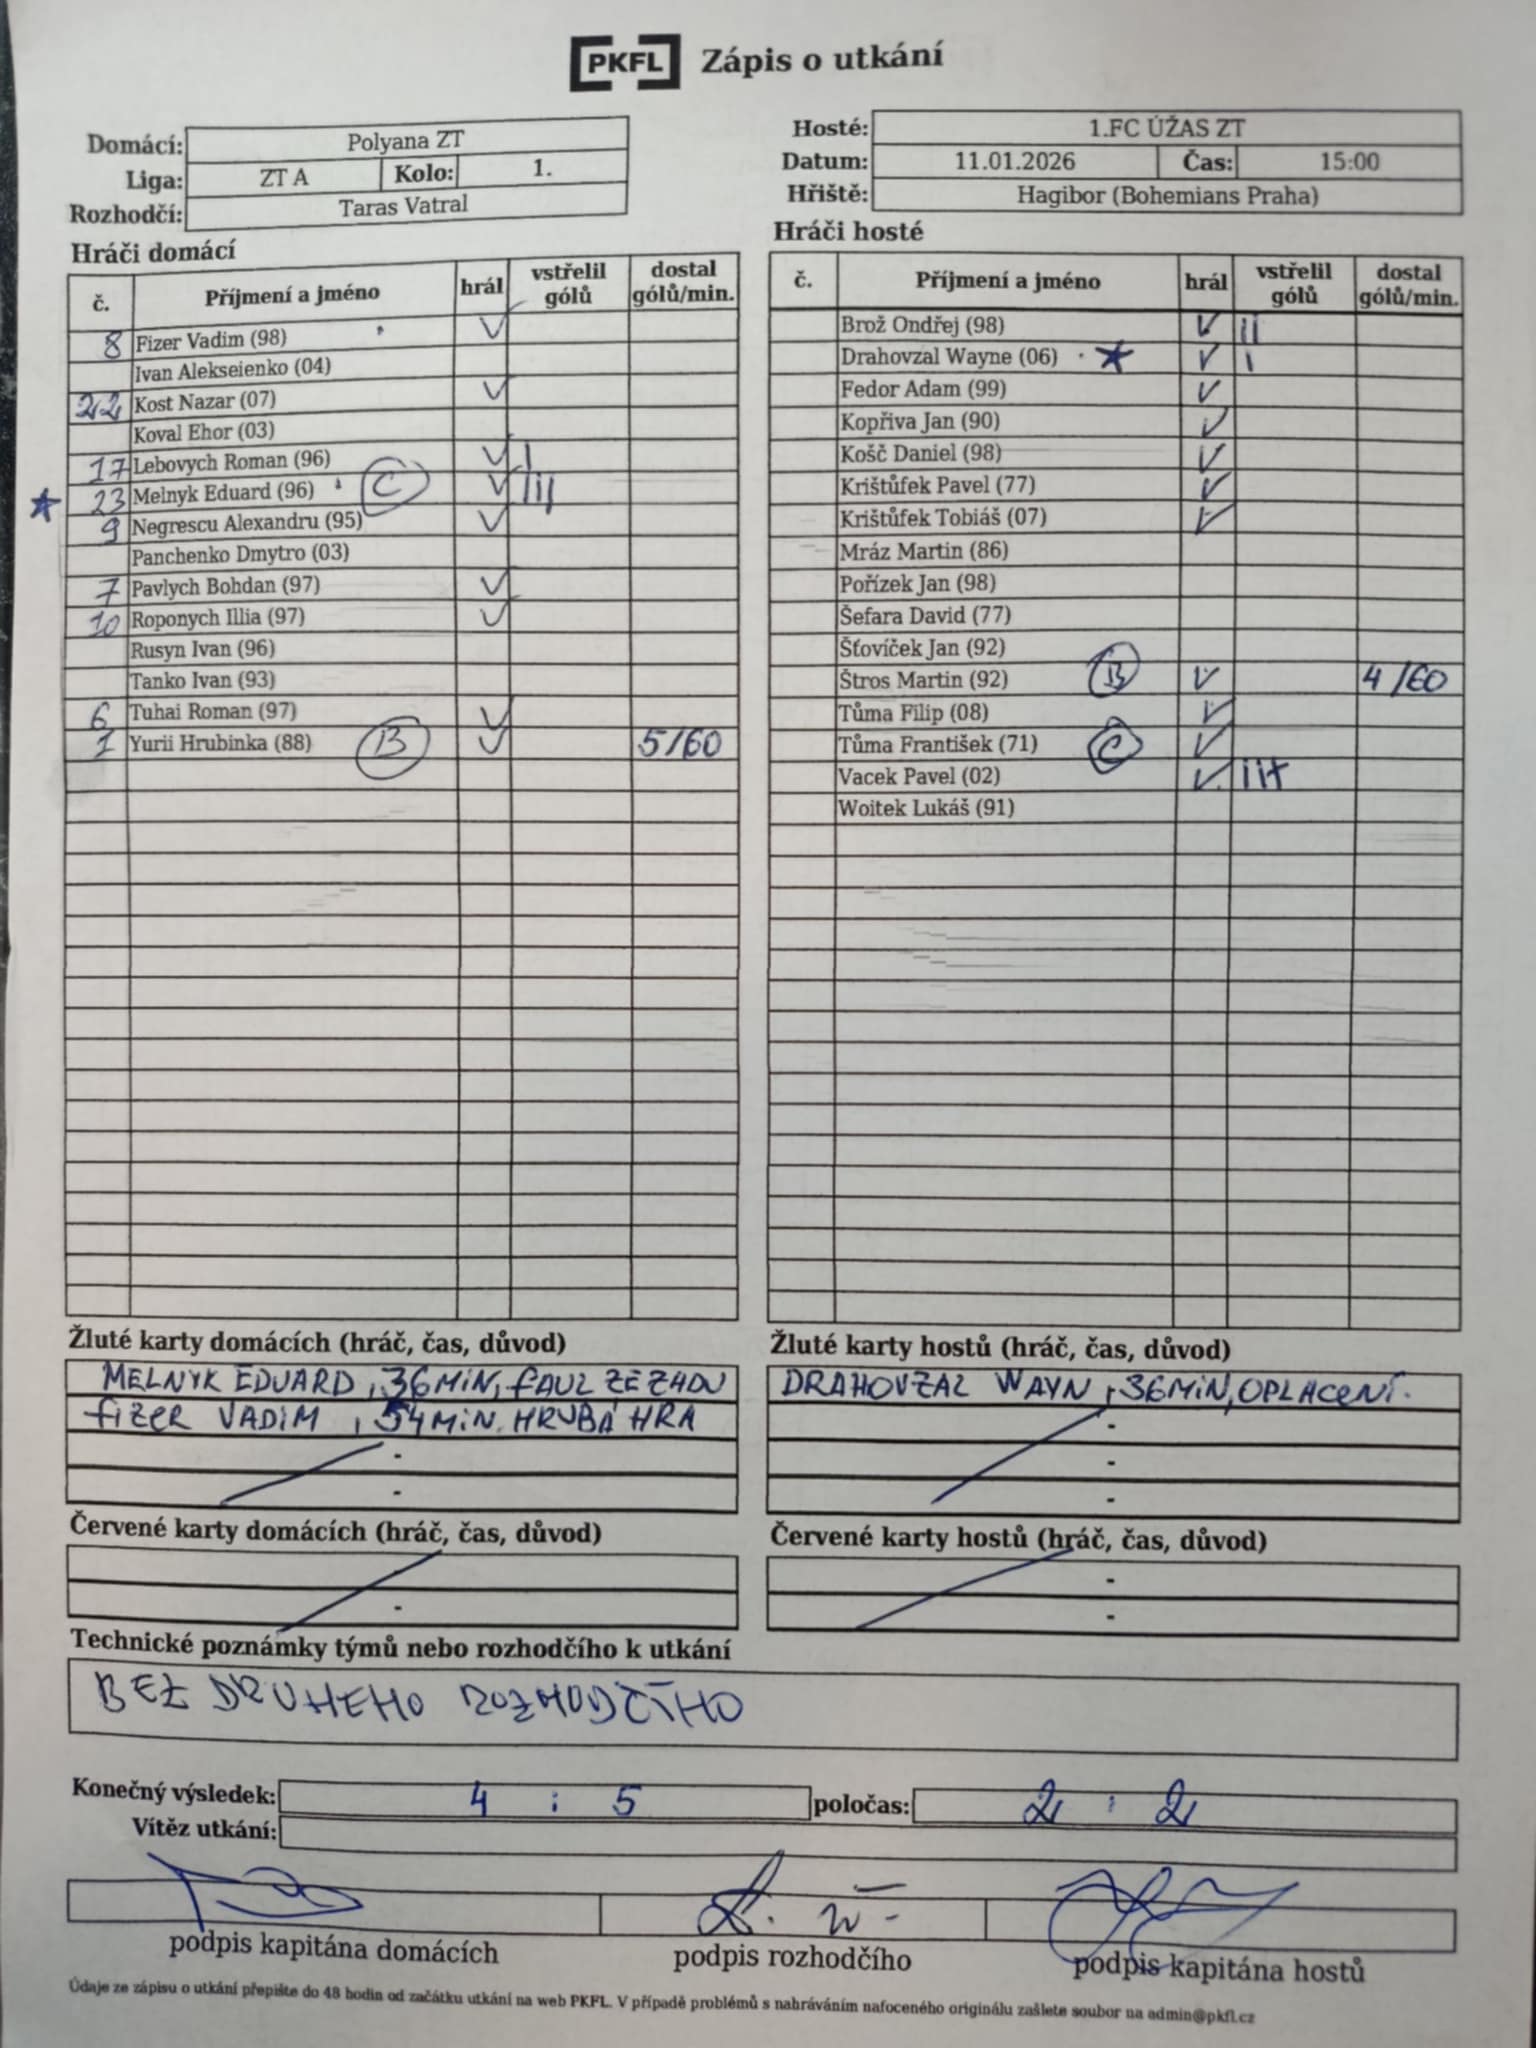 PKFL Zápis o utkání
Domácí: Polyana ZT
Liga: ZT A Kolo: 1.
Rozhodčí: Taras Vatral
Hosté: 1.FC ÚŽAS ZT
Datum: 11.01.2026 Čas: 15:00
Hřiště: Hagibor (Bohemians Praha)
Hráči domácí
č. Příjmení a jméno hrál vstřelil gólů dostal gólů/min.
8 Fizer Vadim (98)
Ivan Alekseienko (04)
22 Kost Nazar (07)
Koval Ehor (03)
17 Lebovych Roman (96) I
23 Melnyk Eduard (96) C III
9 Negrescu Alexandru (95)
Panchenko Dmytro (03)
7 Pavlych Bohdan (97)
10 Roponych Illia (97)
Rusyn Ivan (96)
Tanko Ivan (93)
6 Tuhai Roman (97)
1 Yurii Hrubinka (88) B 5/60
Hráči hosté
č. Příjmení a jméno hrál vstřelil gólů dostal gólů/min.
Brož Ondřej (98) II
Drahovzal Wayne (06) I
Fedor Adam (99)
Kopřiva Jan (90)
Košč Daniel (98)
Krištůfek Pavel (77)
Krištůfek Tobiáš (07)
Mráz Martin (86)
Pořízek Jan (98)
Šefara David (77)
Šťovíček Jan (92)
Štros Martin (92) B 4/60
Tůma Filip (08)
Tůma František (71) C
Vacek Pavel (02)
Woitek Lukáš (91)
Žluté karty domácích (hráč, čas, důvod)
MELNYK EDUARD, 36MIN, FAUL ZEZADU
FIZER VADIM, 54MIN. HRUBÁ HRA
-
-
Žluté karty hostů (hráč, čas, důvod)
DRAHOVZAL WAYN, 36MIN, OPLACENÍ.
-
-
-
Červené karty domácích (hráč, čas, důvod)
-
-
Červené karty hostů (hráč, čas, důvod)
-
-
Technické poznámky týmů nebo rozhodčího k utkání
BEZ DRUHEHO ROZHODČÍHO
Konečný výsledek: 4 : 5 poločas: 2 : 2
Vítěz utkání:
podpis kapitána domácích podpis rozhodčího podpis kapitána hostů
Údaje ze zápisu o utkání přepište do 48 hodin od začátku utkání na web PKFL. V případě problémů s nahráváním nafoceného originálu zašlete soubor na admin@pkfl.cz